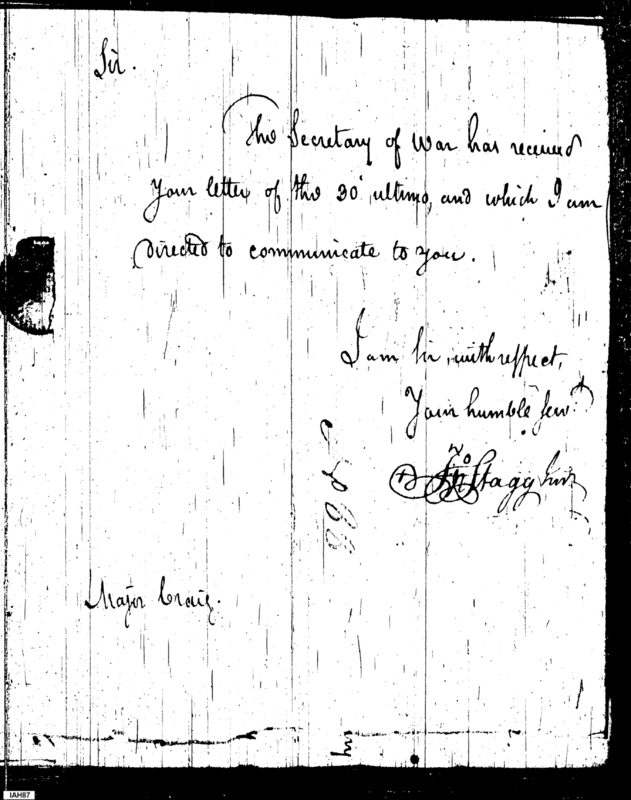 Sir.
The Secretary of War has received
Your letter of the 30' ultimo, and which I am
directed to communicate to you.
I am Sir, with respect,
Your humble Servt
Jno Stagg Junr
Major Craig.
IAH87